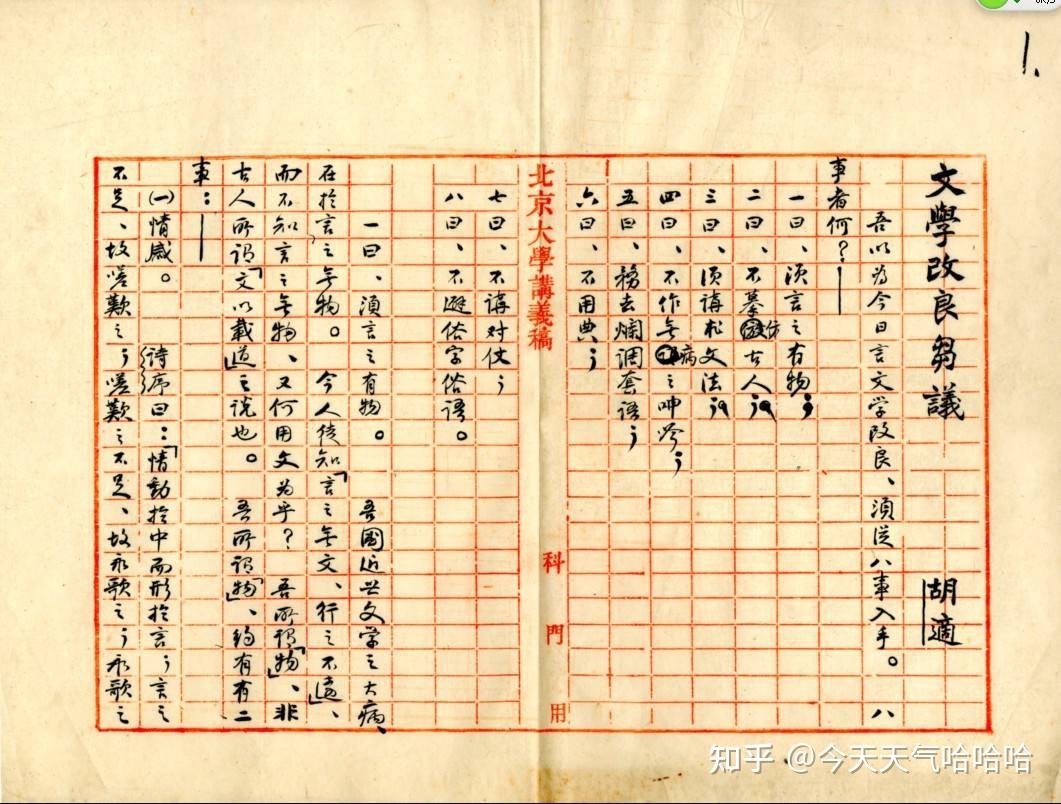 1.
文學改良芻議　胡適
吾以为今日言文学改良、須從八事入手。八
事者何?——
一曰、須言之有物;
二曰、不摹仿古人;
三曰、須講求文法;
四曰、不作無病之呻吟;
五曰、務去爛調套語;
六曰、不用典;
北京大學講義稿　科　門　用
七曰、不講对仗;
八曰、不避俗字俗語。
一曰、須言之有物。　吾國近世文学之大病、
在於言之無物。　今人徒知「言之無文、行之不遠」、
而不知言之無物、又何用文为乎?　吾所謂「物」、非
古人所謂「文以載道」之説也。　吾所謂「物」、約有有二
事:——
(一)情感。　詩序曰:「情動於中而形於言;言之
不足、故嗟歎之;嗟歎之不足、故永歌之;永歌之
知乎 @今天天气哈哈哈